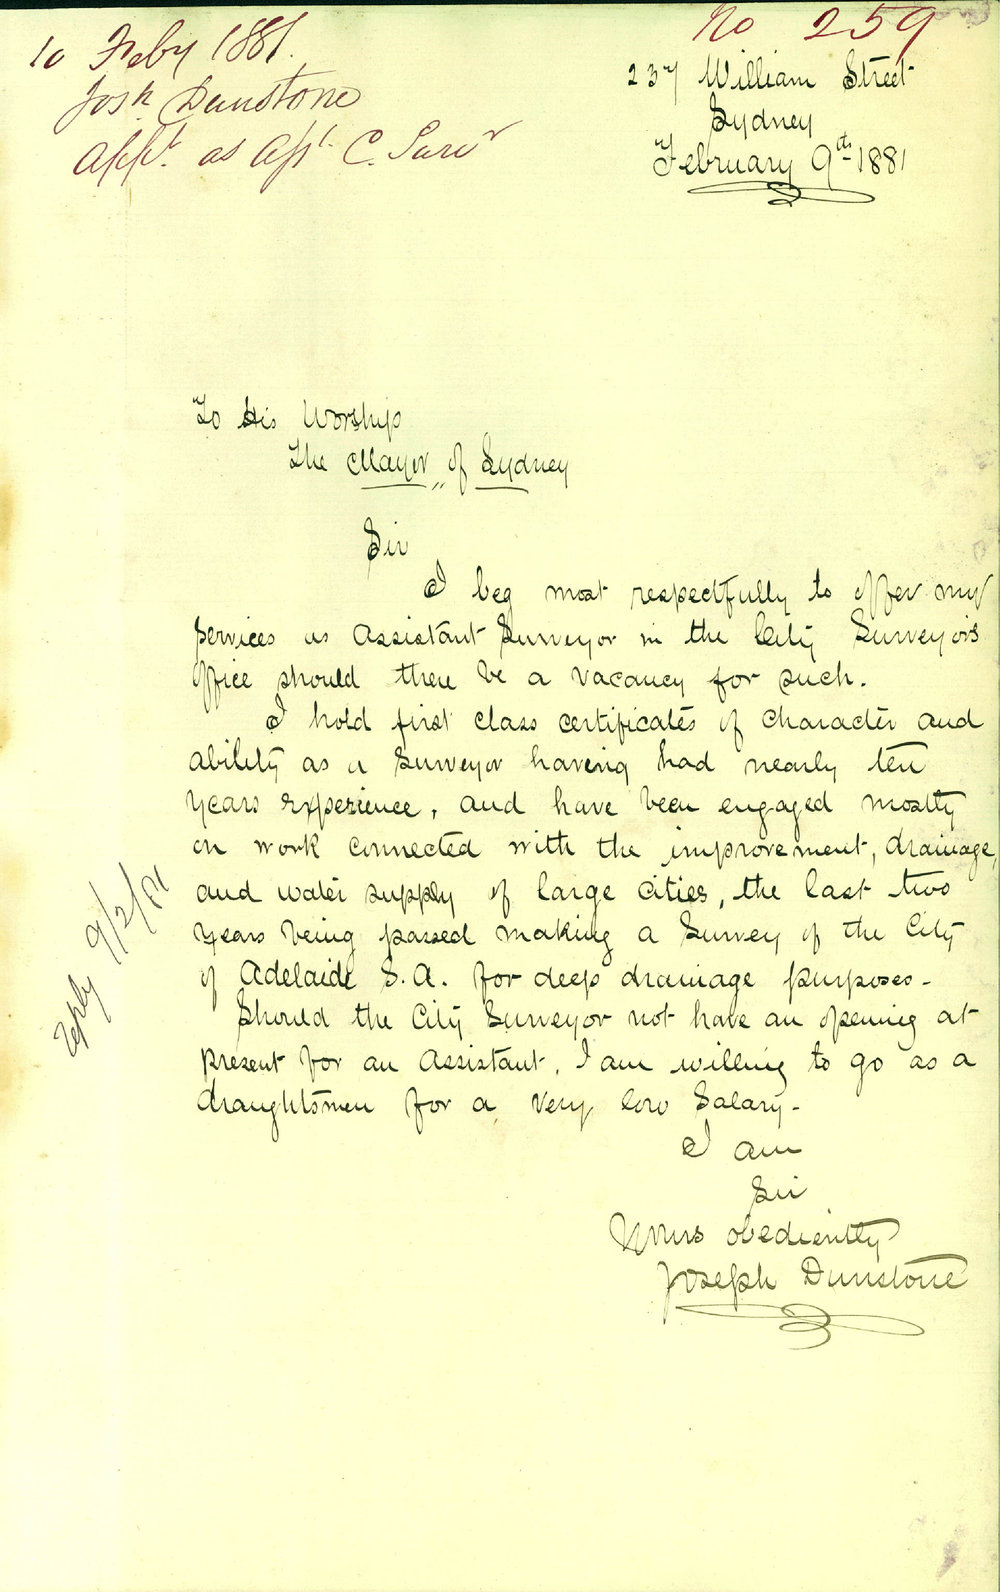 No 259
10 Feby 1881.
Josh Dunstone
Applt. as Asst. C. Survr
237 William Street
Sydney
February 9th 1881
To His Worship
The Mayor of Sydney
Sir
I beg most respectfully to offer my
services as Assistant Surveyor in the City Surveyor's
office should there be a vacancy for such.
I hold first class certificates of character and
ability as a Surveyor having had nearly ten
years experience, and have been engaged mostly
on work connected with the improvement, drainage,
and water supply of large cities, the last two
years being passed making a Survey of the City
of Adelaide S.A. for deep drainage purposes -
Should the City Surveyor not have an opening at
present for an Assistant, I am willing to go as a
draughtsmen for a very low Salary -
I am
Sir
Yours obediently
Joseph Dunstone
Reply 9/2/81